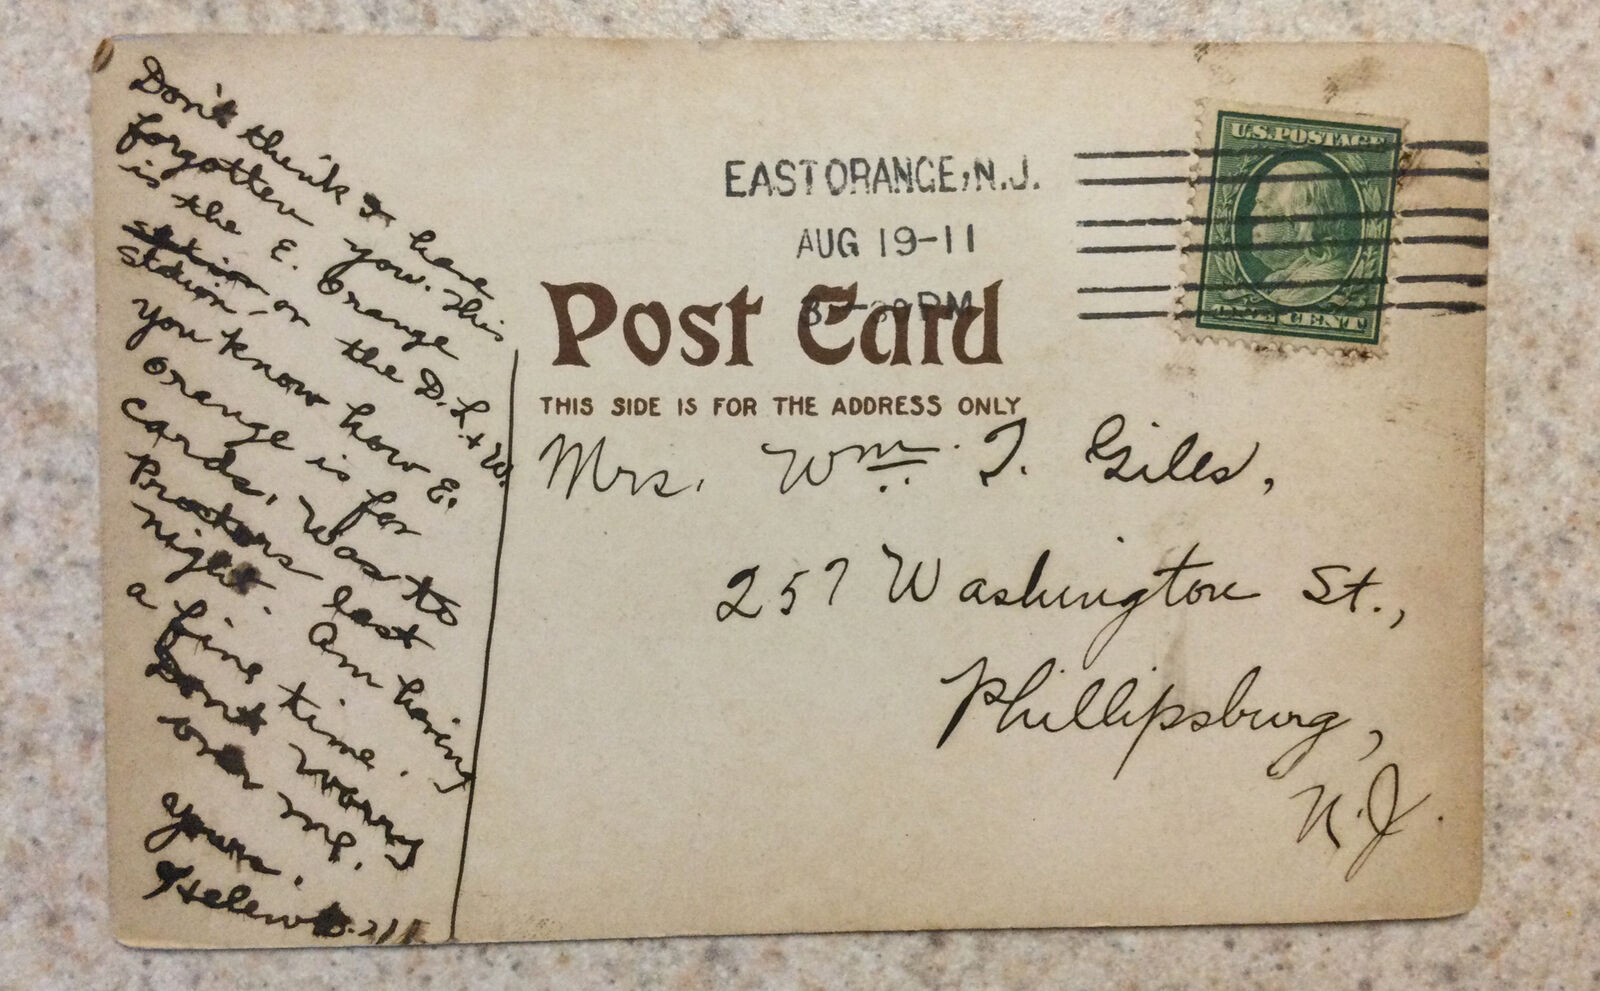 Don't think I have
forgotten you. This
is the E. Orange
station on the D. L. & W.
you know how E.
Orange is for
cards. Was to
Proctors last
night. Am having
a fine time.
Dont worry
over me.
Yours,
Helen
EAST ORANGE, N.J.
AUG 19-11
PM
U.S. POSTAGE
ONE CENT
Post Card
THIS SIDE IS FOR THE ADDRESS ONLY
Mrs. Wm. T. Giles,
257 Washington St.,
Phillipsburg,
N.J.